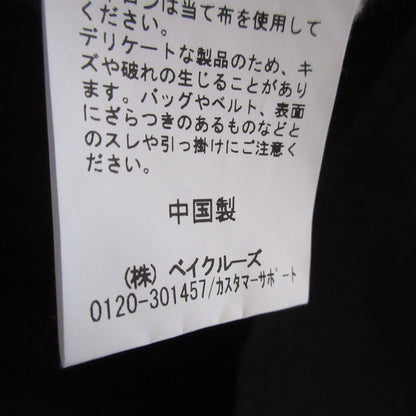 ロンは当て布を使用して
ください。
デリケートな製品のため、キ
ズや破れの生じることがあり
ます。バッグやベルト、表面
にざらつきのあるものなどと
のスレや引っ掛けにご注意く
ださい。
中国製
(株) ベイクルーズ
0120-301457/カスタマーサポート